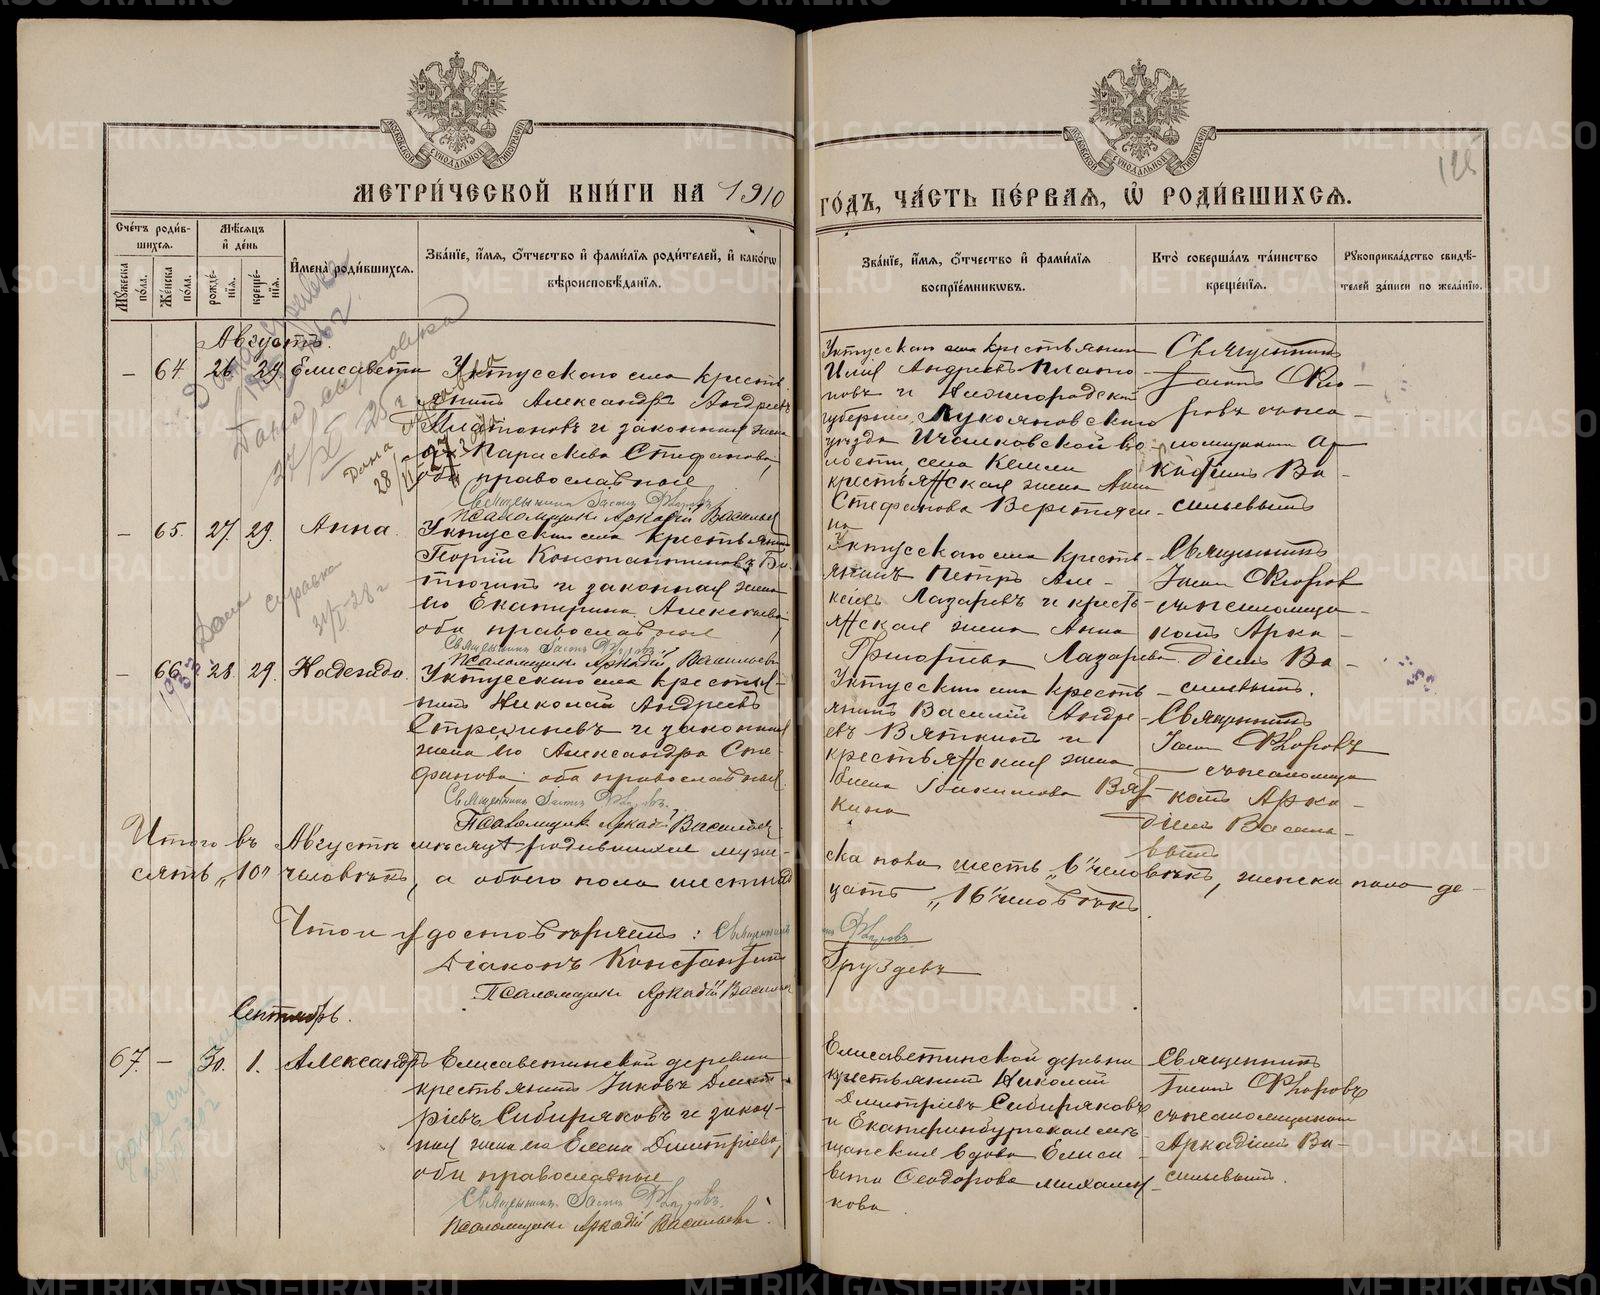 МЕТРИ́ЧЕСКОЙ КНИ́ГИ НА 1910
ГО́ДЪ, ЧА́СТЬ ПЕ́РВАѦ, Ѡ РОДИ́ВШИХСѦ.
125
Сче́тъ роди́в-
шихсѧ.
Мꙋжеска по́ла.
Же́нска по́ла.
Мѣ́сѧцъ и де́нь
рожде́нїѧ.
креще́нїѧ.
Имена̀ роди́вшихсѧ.
Зва́нїе, и́мѧ, о́тчество и фами́лїѧ роди́телей, и како́гѡ
вѣроисповѣ́данїѧ.
Зва́нїе, и́мѧ, о́тчество и фами́лїѧ
воспрїе́мникѡвъ.
Кто̀ соверша́лъ та́инство
креще́нїѧ.
Рꙋкоприкла́дство свидѣ́-
телей за́писи по жела́нїю.
Августъ.
— 64. 26 29 Елисавета
Уктусскаго села кресть-
янинъ Александръ Андреевъ
Платоновъ и законная жена
его Параскева Стефанова,
оба православные
Священникъ Іоаннъ Флоровъ
Псаломщикъ Аркадій Васильев
Уктусскаго села крестьянинъ
Илія Андреевъ Плато-
новъ и Нижегородской
губерніи, Лукояновскаго
уѣзда Ичалковской во-
лости села Кемли
крестьянская жена Анна
Стефанова Веретяги-
на
Священникъ
Іоаннъ Фло-
ровъ съ пса-
ломщикомъ Ар-
кадіемъ Ва-
сильевымъ
— 65. 27. 29. Анна.
Уктусскаго села крестьянинъ
Георгій Константиновъ
и законная жена
его Екатерина Алексѣева,
оба православные
Священникъ Іоаннъ Флоровъ
Псаломщикъ Аркадій Васильевъ
Уктусскаго села кресть-
янинъ Петръ Але-
ксѣевъ Лазаревъ и кресть-
янская жена Анна
Григорьева Лазарева
Священникъ
Іоаннъ Флоровъ
съ псаломщи-
комъ Арка-
діемъ Ва-
сильевымъ.
— 66. 28. 29. Надежда.
Уктусскаго села крестья-
нинъ Николай Андреевъ
и законная
жена его Александра Сте-
фанова оба православные
Священникъ Іоаннъ Флоровъ.
Псаломщикъ Аркадій Васильевъ
Уктусскаго села кресть-
янинъ Василій Андре-
евъ Вяткинъ и
крестьянская жена
Вят-
кина
Священникъ
Іоаннъ Флоровъ
съ псаломщи-
комъ Арка-
діемъ Василь-
евымъ
Итого въ Августѣ мѣсяцѣ родившихся муже-
ска пола шесть „6“ человѣкъ, женска пола де-
сять „10“ человѣкъ, а обоего пола шестнад-
цать „16“ человѣкъ.
Что и удостовѣряемъ: Священникъ
Флоровъ
Діаконъ Константинъ
Груздевъ
Псаломщикъ Аркадій Васильев
Сентябрь.
67. — 30. 1. Александръ
Елисаветинской деревни
крестьянинъ Іаковъ Димит-
ріевъ Сибиряковъ и закон-
ная жена его Елена Димитріева,
оба православные
Священникъ Іоаннъ Флоровъ.
Псаломщикъ Аркадій Васильевъ.
Елисаветинской деревни
крестьянинъ Николай
Димитріевъ Сибиряковъ
и Екатеринбургская мѣ-
щанская вдова Елиса-
вета Ѳеодорова
кова
Священникъ
Іоаннъ Флоровъ
съ псаломщикомъ
Аркадіемъ Ва-
сильевымъ.
METRIKI.GASO-URAL.RU